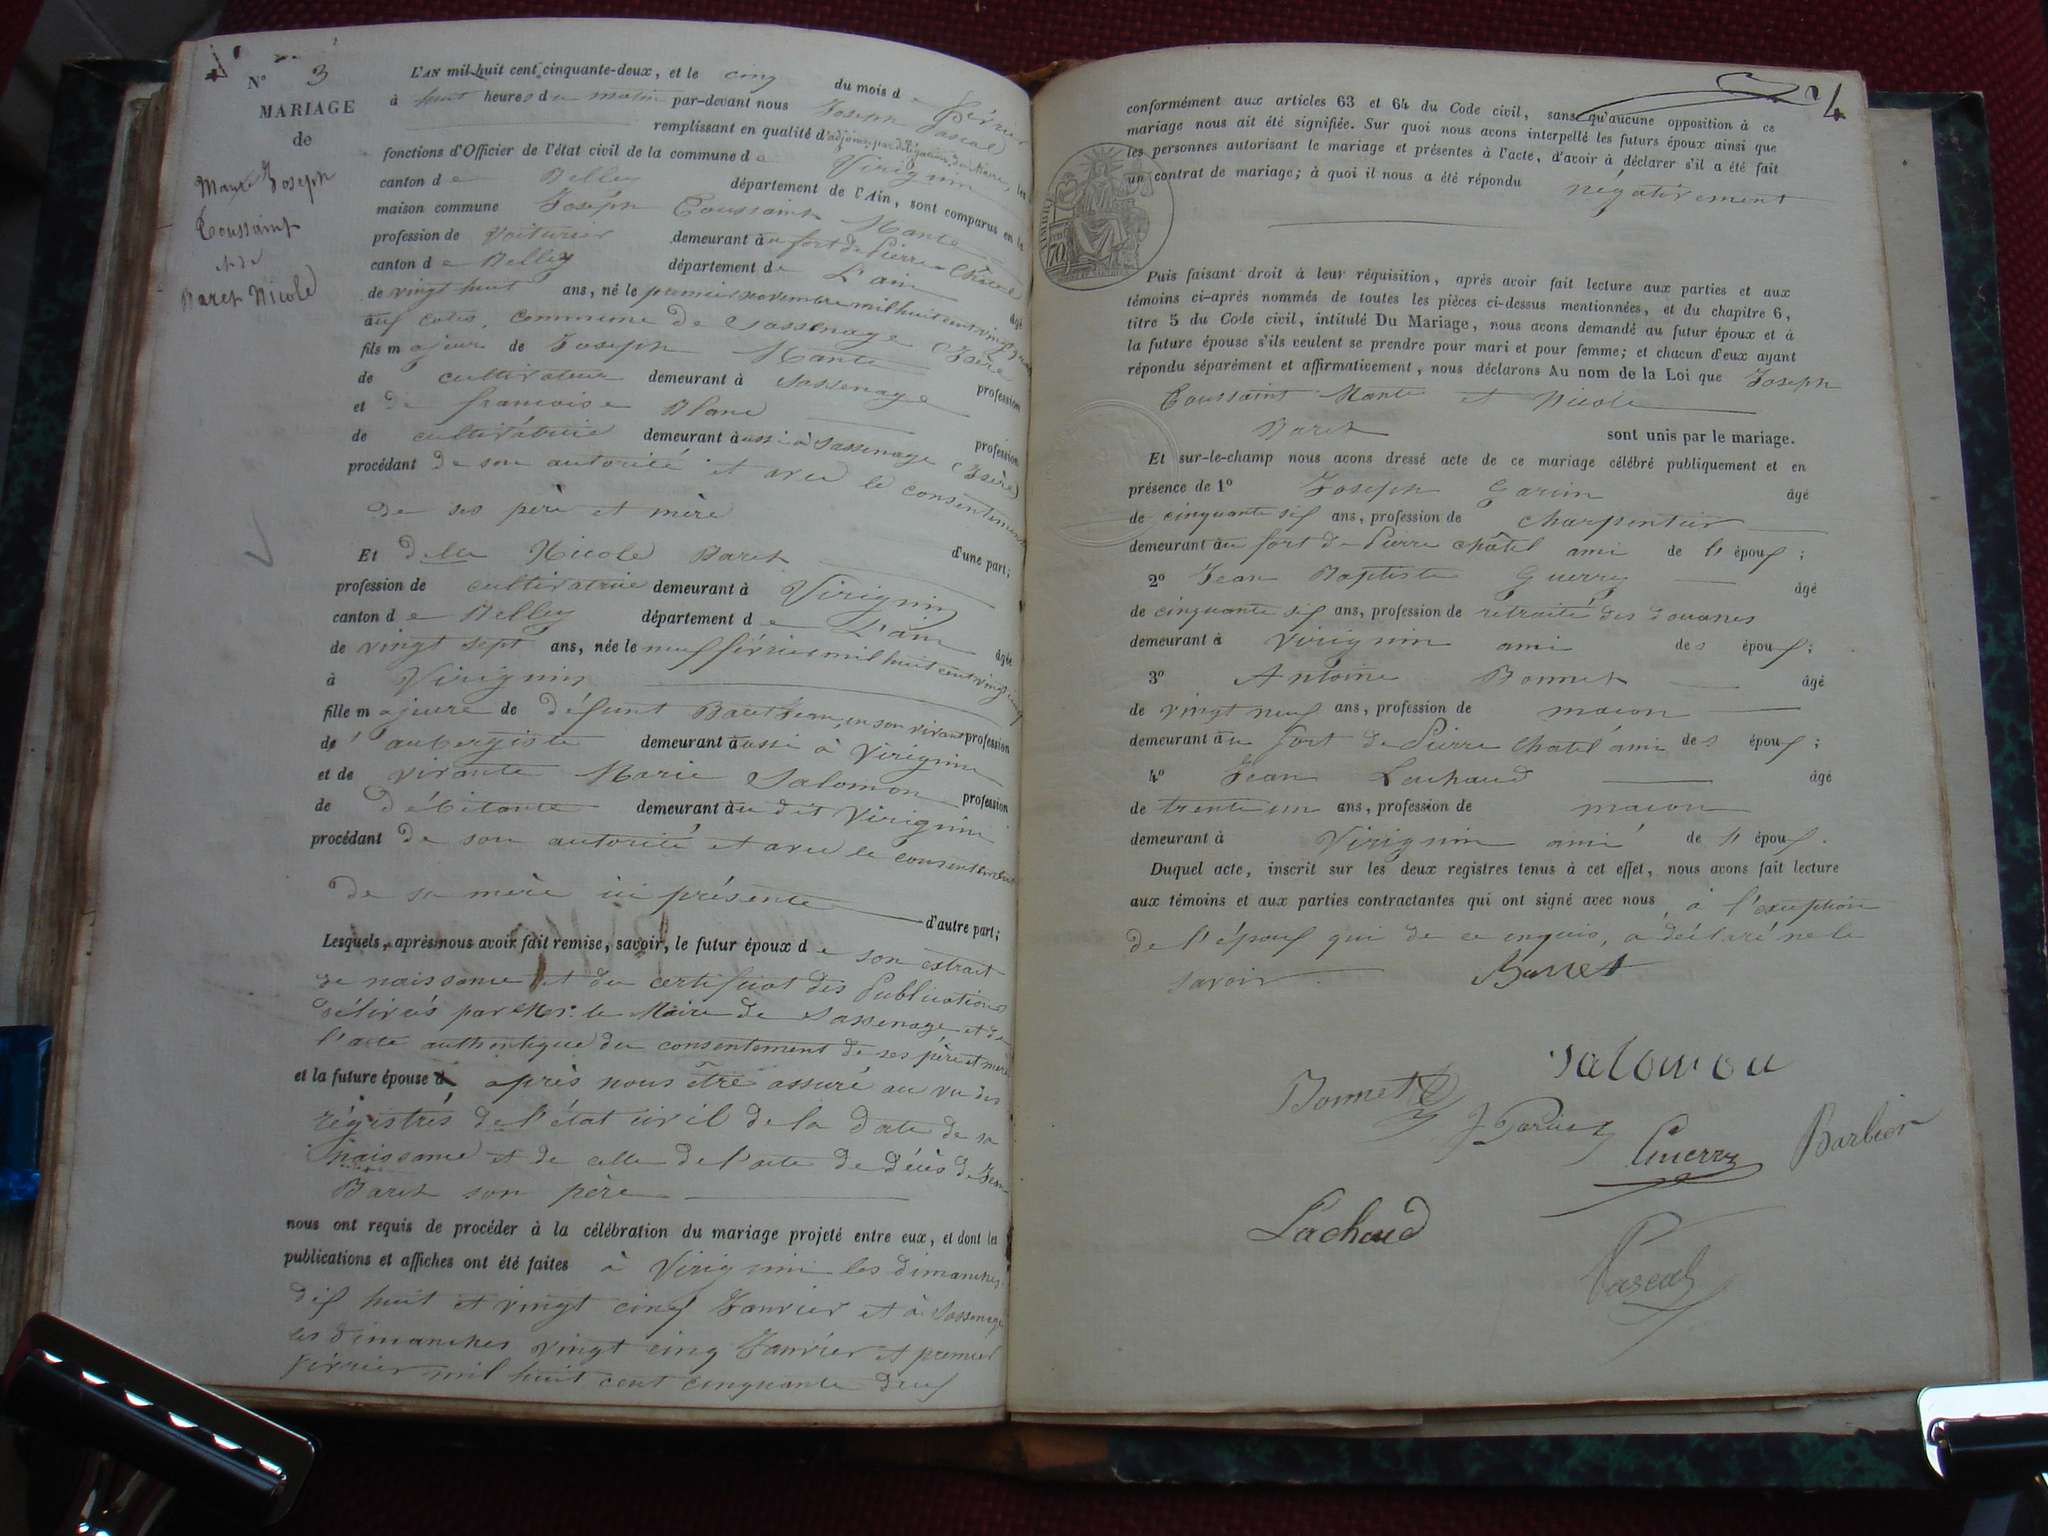 N° 3
MARIAGE
de
Mante Joseph
Toussaint
et de
Baret Nicole
L'AN mil huit cent cinquante-deux, et le cinq du mois de février
à huit heures du matin par-devant nous Joseph Pascal
remplissant en qualité d'adjoint par délégation du Maire, les
fonctions d'Officier de l'état civil de la commune de Virignin
canton de Belley département de l'Ain, sont comparus en la
maison commune Joseph Toussaint Mante
profession de voiturier demeurant au fort de Pierre Châtel
canton de Belley département de L'ain âgé
de vingt huit ans, né le premier novembre mil huit cent vingt
aux cotes, commune de Sassenage (Isère
fils majeur de Joseph Mante profession
de cultivateur demeurant à Sassenage
et de francoise Blanc profession
de cultivatrice demeurant aussi à Sassenage (Isère)
procédant de son autorité et avec le consentement
de ses père et mère
d'une part;
Et delle Nicole Baret
profession de cultivatrice demeurant à Virignin
canton de Belley département de L'ain âgée
de vingt sept ans, née le neuf février mil huit cent vingt cinq
à Virignin
fille majeure de défunt Baret Jean, en son vivant profession
de aubergiste demeurant aussi à Virignin
et de vivante Marie Salomon profession
de débitante demeurant au dit Virignin
procédant de son autorité et avec le consentement
de sa mère ici présente d'autre part;
Lesquels, après nous avoir fait remise, savoir, le futur époux de son extrait
de naissance et du certificat des Publications
délivrés par Mr. le Maire de Sassenage et de
l'acte authentique du consentement de ses père et mère
et la future épouse d, après nous être assuré au vu des
régistrés de l'état civil de la date de sa
naissance et de celle de l'acte de décès de Jean
Baret son père
nous ont requis de procéder à la célébration du mariage projeté entre eux, et dont les
publications et affiches ont été faites à Virignin les dimanches
dix huit et vingt cinq Janvier et à Sassenage
les dimanches vingt cinq Janvier et premier
février mil huit cent cinquante deux
4
conformément aux articles 63 et 64 du Code civil, sans qu'aucune opposition à ce
mariage nous ait été signifiée. Sur quoi nous avons interpellé les futurs époux ainsi que
les personnes autorisant le mariage et présentes à l'acte, d'avoir à déclarer s'il a été fait
un contrat de mariage; à quoi il nous a été répondu négativement
TIMBRE
70
Puis faisant droit à leur réquisition, après avoir fait lecture aux parties et aux
témoins ci-après nommés de toutes les pièces ci-dessus mentionnées, et du chapitre 6,
titre 5 du Code civil, intitulé Du Mariage, nous avons demandé au futur époux et à
la future épouse s'ils veulent se prendre pour mari et pour femme; et chacun d'eux ayant
répondu séparément et affirmativement, nous déclarons Au nom de la Loi que Joseph
Toussaint Mante et Nicole
Baret sont unis par le mariage.
Et sur-le-champ nous avons dressé acte de ce mariage célébré publiquement et en
présence de 1° Joseph Garin âgé
de cinquante six ans, profession de charpentier
demeurant au fort de Pierre châtel ami de l'époux;
2° Jean Baptiste Guerry âgé
de cinquante six ans, profession de retraité des douanes
demeurant à Virignin ami des époux;
3° Antoine Bonnet âgé
de vingt neuf ans, profession de macon
demeurant au fort de Pierre Chatel ami des époux;
4° Jean Lachaud âgé
de trente un ans, profession de macon
demeurant à Virignin ami de l'époux.
Duquel acte, inscrit sur les deux registres tenus à cet effet, nous avons fait lecture
aux témoins et aux parties contractantes qui ont signé avec nous, à l'exception
de l'époux qui de ce enquis, a déclaré ne le
savoir. Barret
Salomon
Bonnet
J Garin
Guerry
Barbier
Lachaud
Pascal